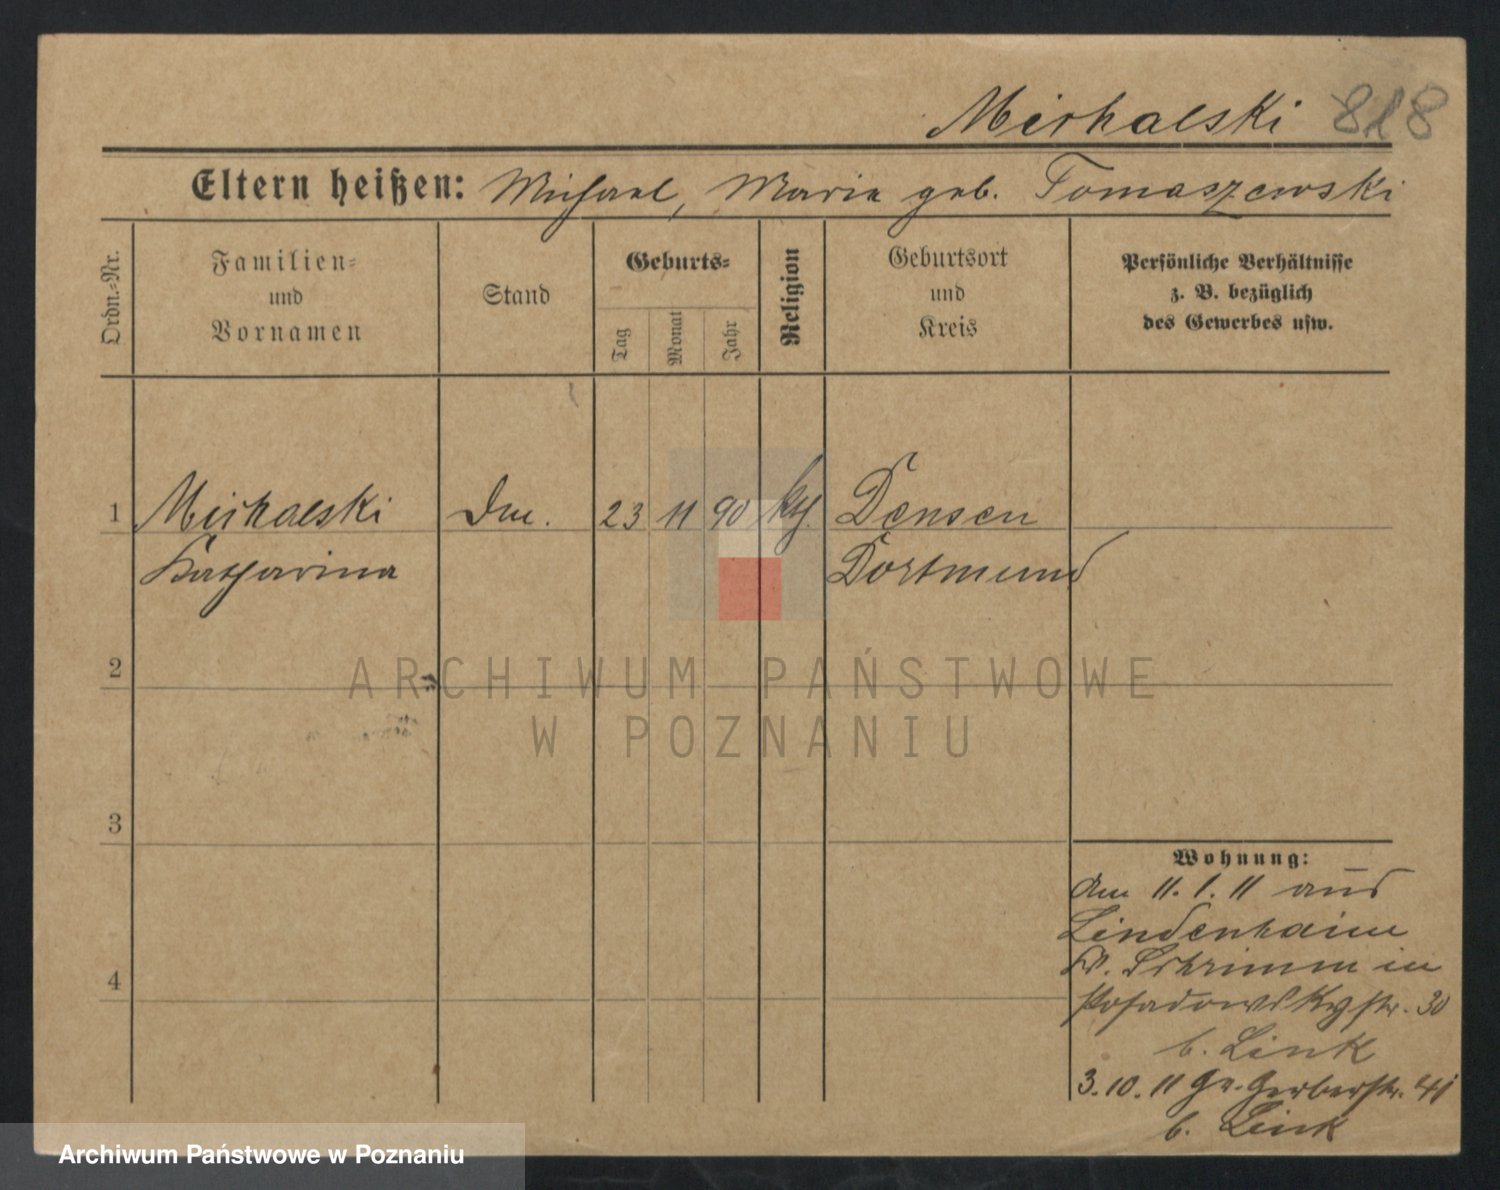 Michalski 818
Eltern heißen: Michael, Maria geb. Tomaszewski
Ordn.-Nr.
Familien-
und
Vornamen
Stand
Geburts-
Tag
Monat
Jahr
Religion
Geburtsort
und
Kreis
Persönliche Verhältnisse
z. B. bezüglich
des Gewerbes usw.
1 Michalski 23 11 90 kth. Densen
Katharina Dortmund
2
3
4
Wohnung:
Am 11. 1. 11 aus
Lindenhaim
Kr. Schrimm in
Posadowskystr. 30
b. Link
3. 10. 11 Gr. Gerberstr. 41
b. Link
ARCHIWUM PAŃSTWOWE
W POZNANIU
Archiwum Państwowe w Poznaniu